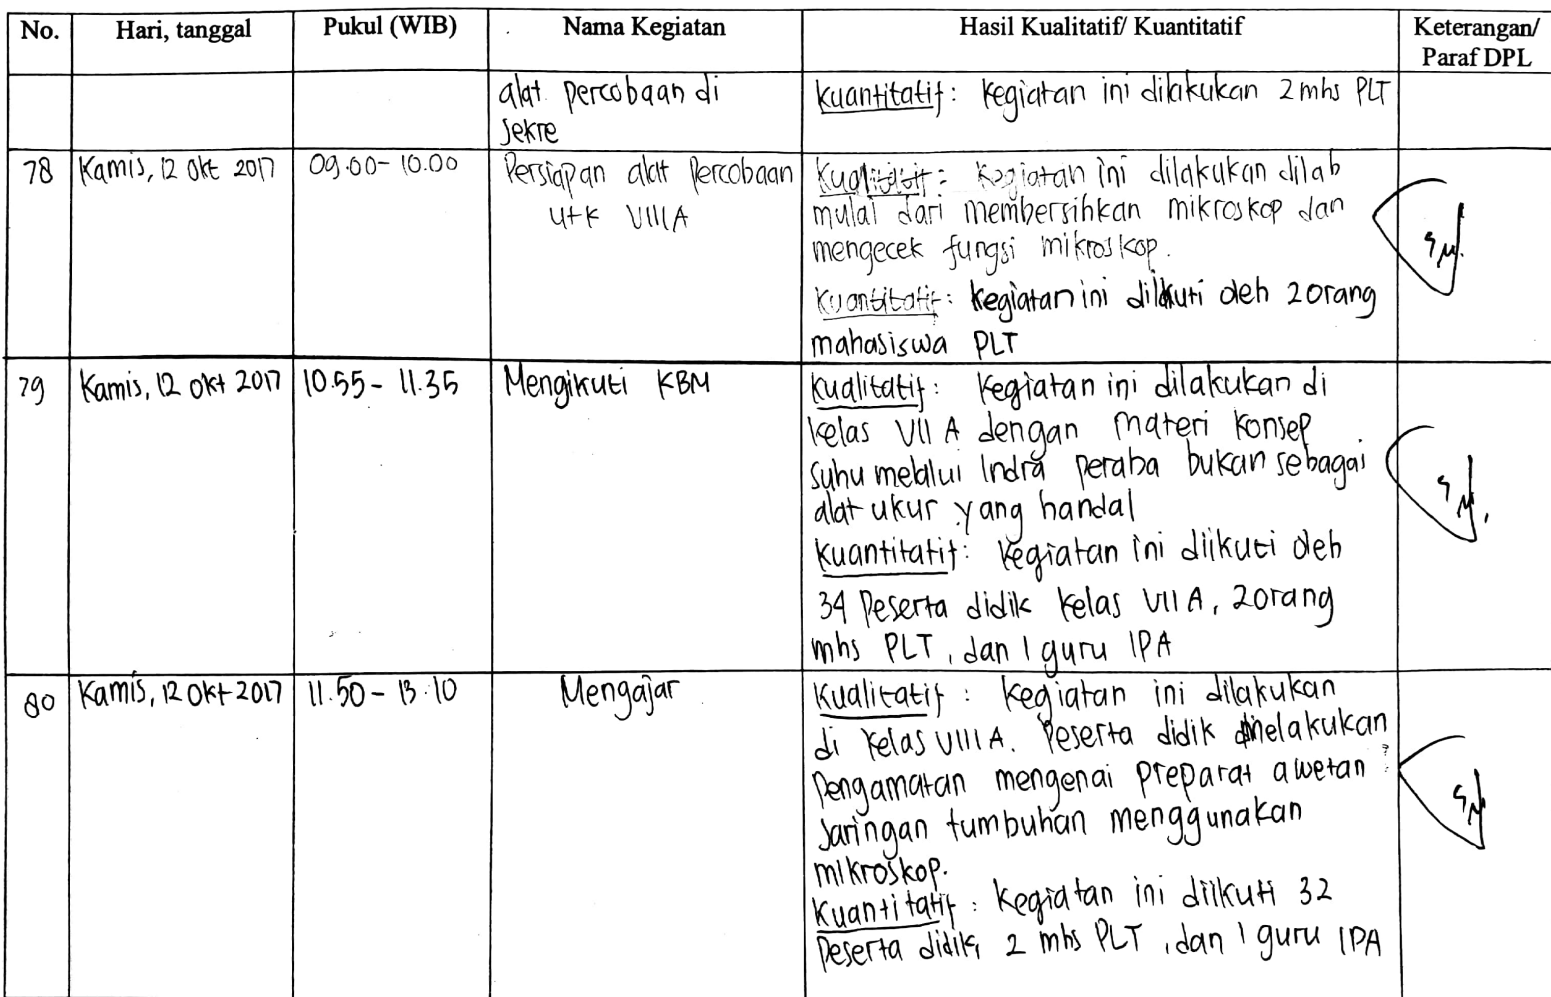 No. Hari, tanggal Pukul (WIB) Nama Kegiatan Hasil Kualitatif/ Kuantitatif Keterangan/
Paraf DPL
alat percobaan di
sekre
Kuantitatif: Kegiatan ini dilakukan 2 mhs PLT
78 Kamis, 12 Okt 2017 09.00-10.00
Persiapan alat Percobaan
utk VIII A
Kualitatif: Kegiatan ini dilakukan dilab
mulai dari membersihkan mikroskop dan
mengecek fungsi mikroskop.
Kuantitatif: Kegiatan ini diikuti oleh 2 orang
mahasiswa PLT
79 Kamis, 12 okt 2017 10.55- 11.35 Mengikuti KBM
Kualitatif: Kegiatan ini dilakukan di
Kelas VII A dengan materi Konsep
suhu melalui Indra peraba bukan sebagai
alat ukur yang handal
Kuantitatif: Kegiatan ini diikuti oleh
34 Peserta didik Kelas VII A, 2 orang
mhs PLT, dan 1 guru IPA
80 Kamis, 12 Okt 2017 11.50 - 13.10 Mengajar
Kualitatif: Kegiatan ini dilakukan
di Kelas VIII A. Peserta didik melakukan
Pengamatan mengenai Preparat awetan
Jaringan tumbuhan menggunakan
mikroskop.
Kuantitatif: Kegiatan ini diikuti 32
Peserta didik, 2 mhs PLT, dan 1 guru IPA